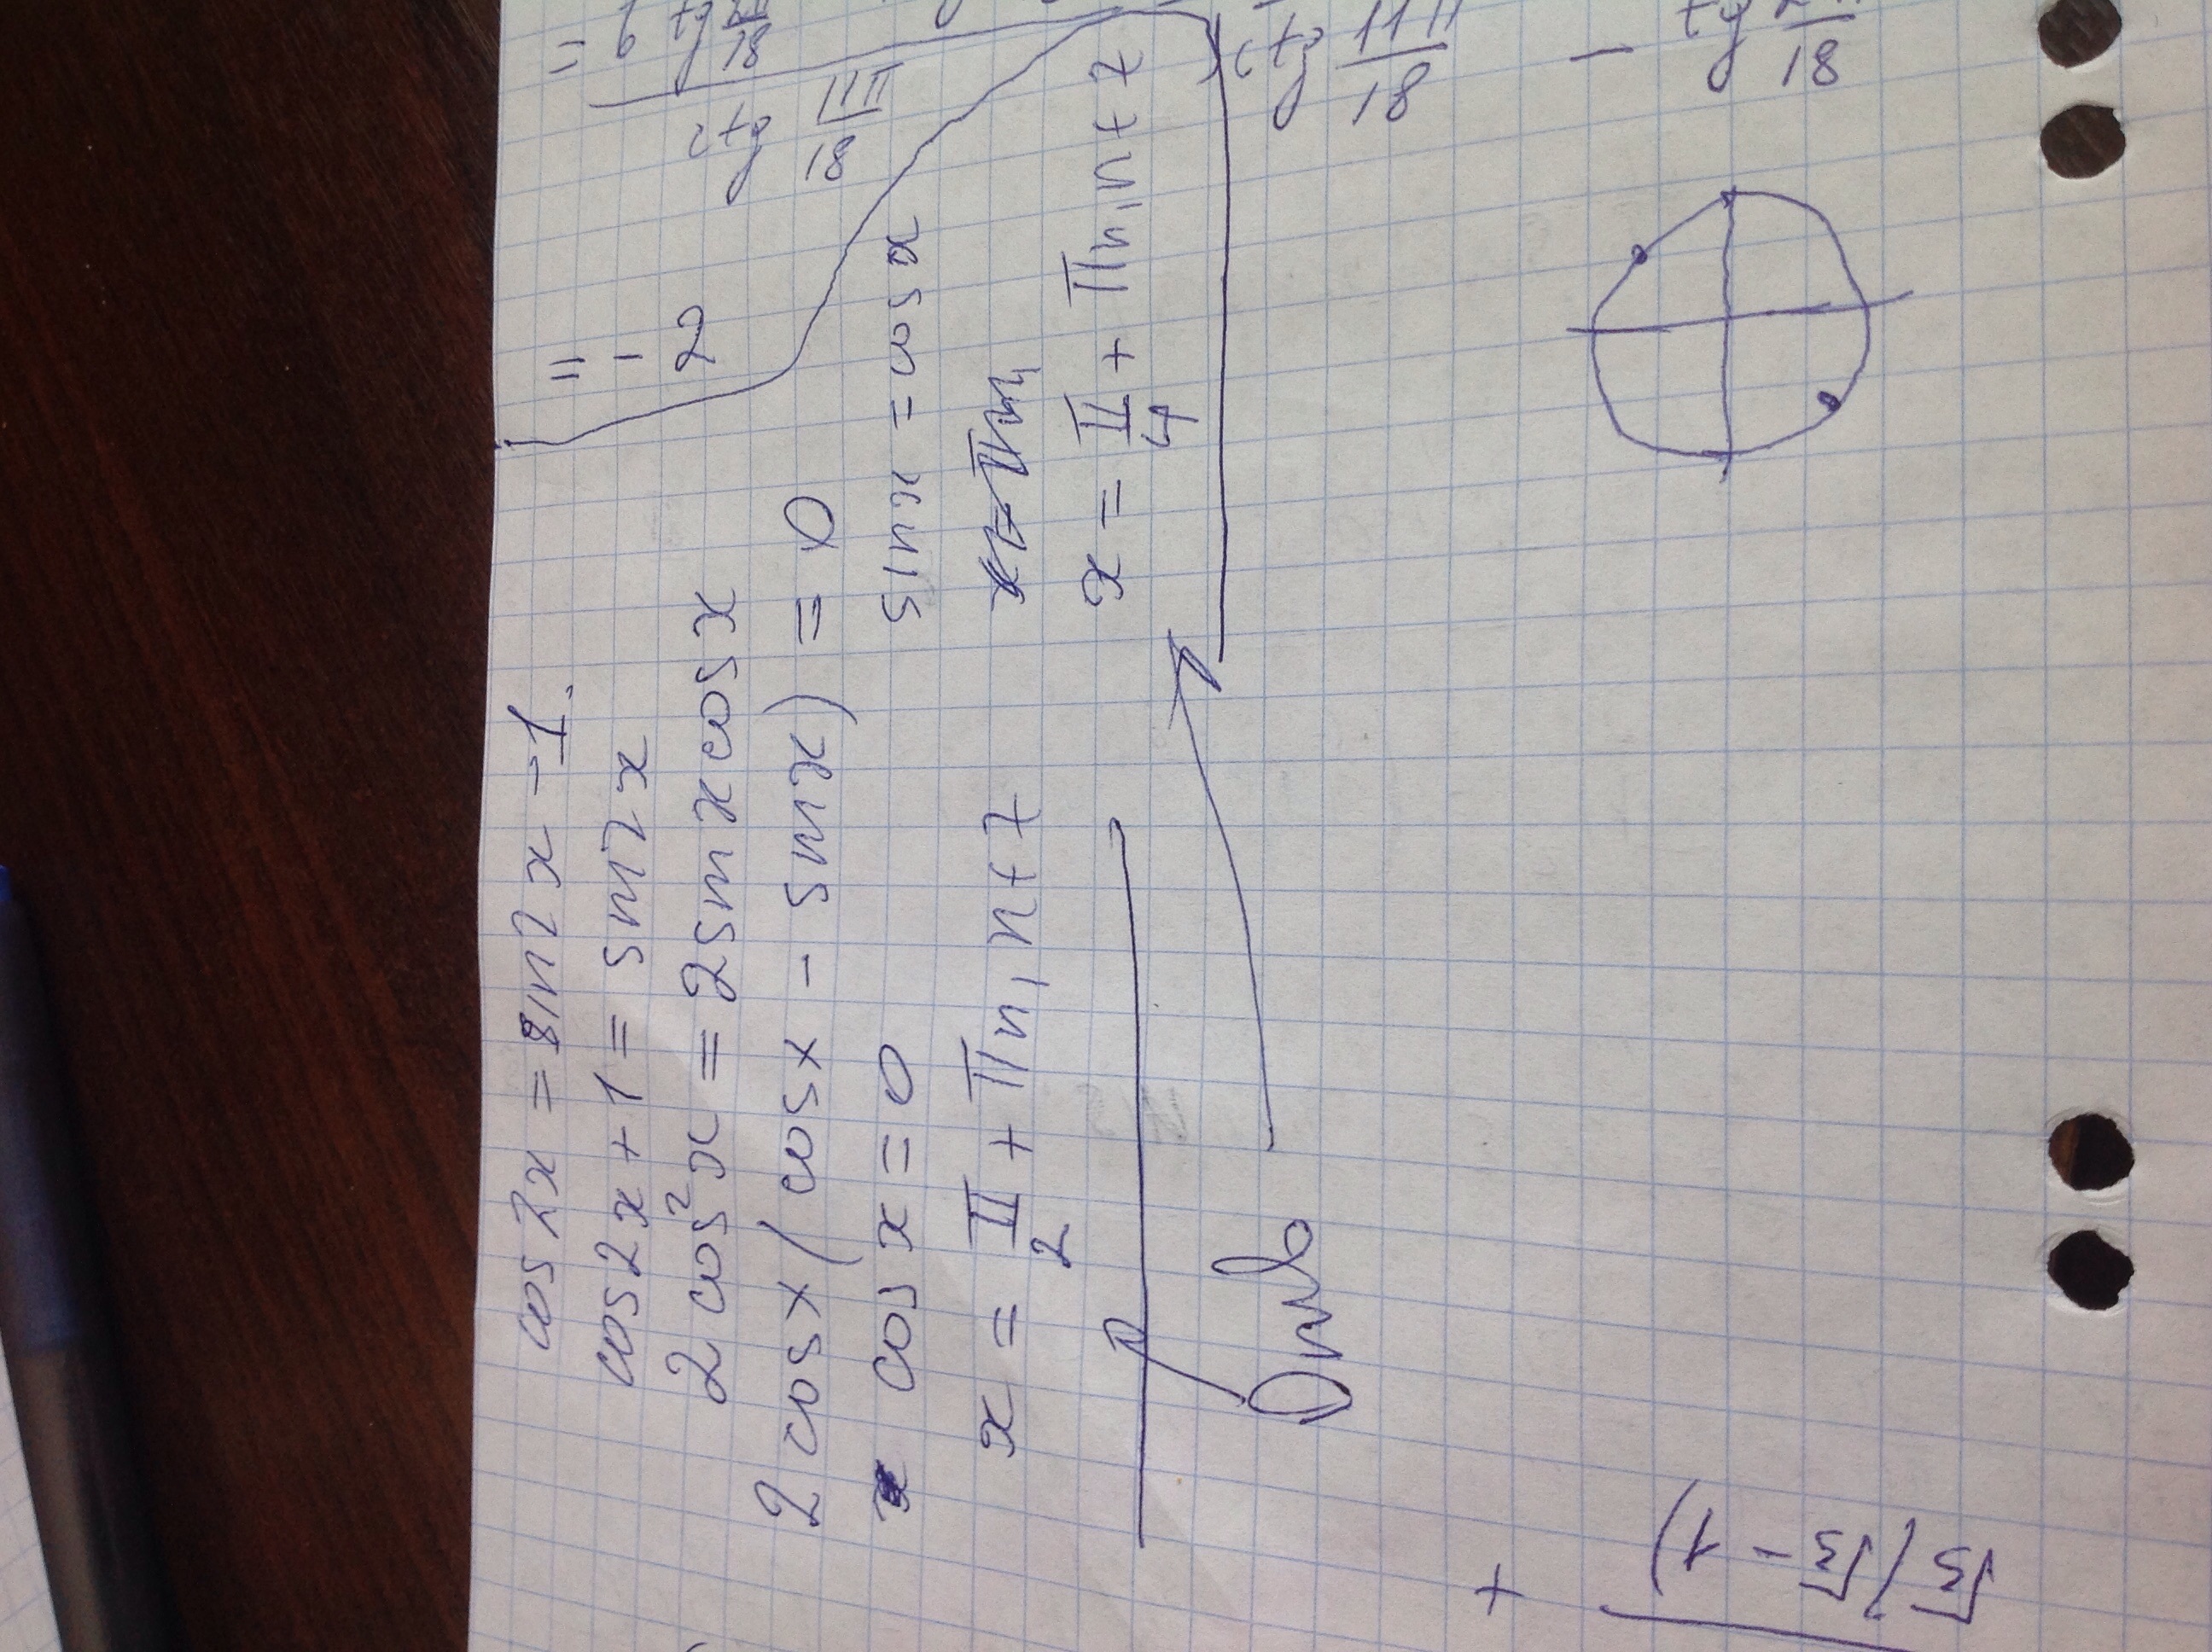 cos 2x = sin 2x - 1.
cos 2x + 1 = sin 2x
2 cos² x = 2 sin x cos x
2 cos x ( cos x - sin x ) = 0
cos x = 0 sin x = cos x
x = π/2 + πn, n ∈ Z x = π/4 + πn, n ∈ Z
= -
2
ctg 11π/18
ctg 11π/18 -
+
√3 (√3 - 1)